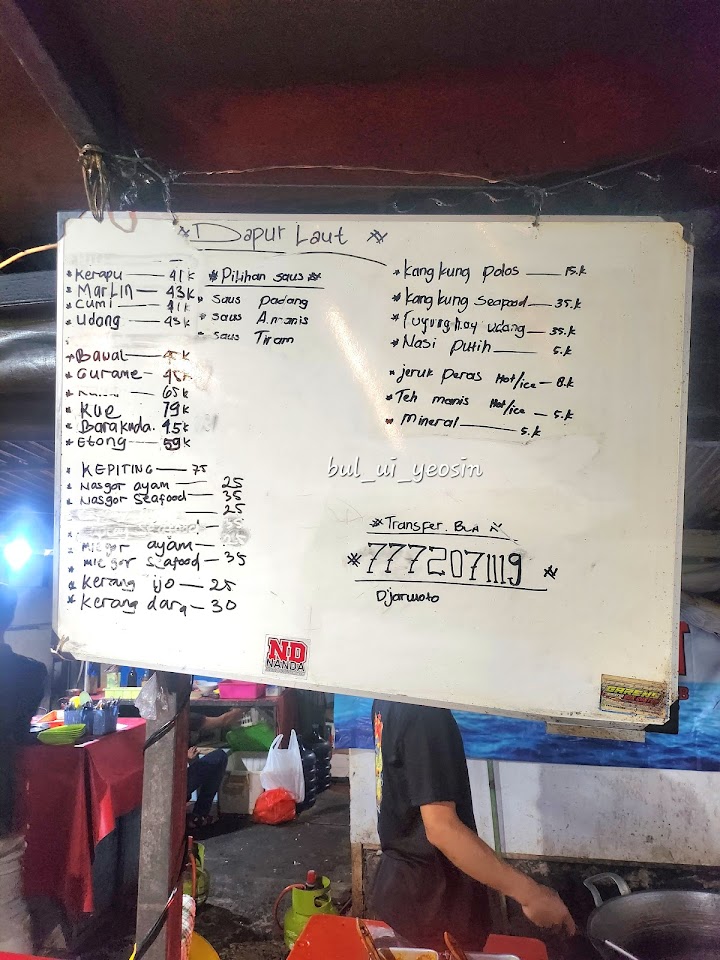 Dapur Laut
Kerapu 41k
Marlin 43k
Cumi 41k
Udong 43k
Bawal 45k
Gurame 45k
65k
Kue 79k
Barakuda 45k
Etong 59k
KEPITING 75
Nasgor ayam 25
Nasgor Seafood 35
25
mie gor ayam
mie gor Seafood 35
Kerang ijo 25
Kerang dara 30
Pilihan saus
Saus padang
Saus A.manis
Saus Tiram
Kangkung polos 15.k
Kangkung Seafood 35.k
udang 35.k
Nasi Putih 5.k
jeruk peras Hot/ice 8.k
Teh manis Hot/ice 5.k
Mineral 5.k
bul_ui_yeosin
Transfer. BCA
7772071119
Djarwoto
ND
NANDA